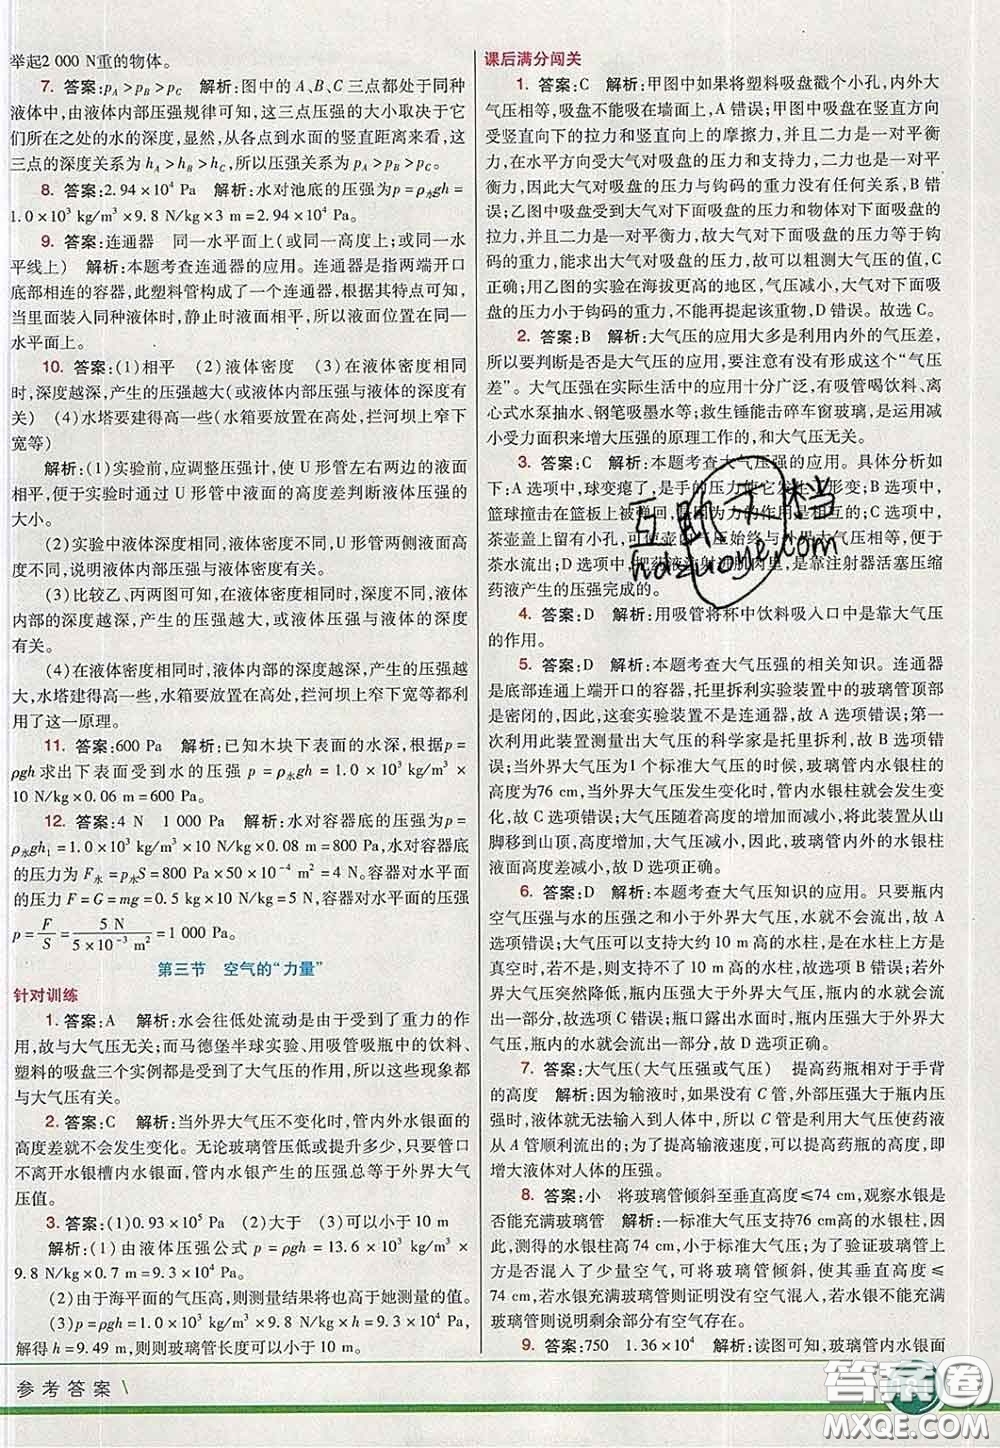 举起2 000 N重的物体。
7. 答案:pA>pB>pC 解析:图中的A、B、C三点都处于同种
液体中,由液体内部压强规律可知,这三点压强的大小取决于它
们所在之处的水的深度,显然,从各点到水面的竖直距离来看,这
三点的深度关系为hA>hB>hC,所以压强关系为pA>pB>pC。
8. 答案:2.94×10⁴ Pa 解析:水对池底的压强为p=ρ水gh=
1.0×10³ kg/m³×9.8 N/kg×3 m=2.94×10⁴ Pa。
9. 答案:连通器 同一水平面上(或同一高度上;或同一水
平线上) 解析:本题考查连通器的应用。连通器是指两端开口
底部相连的容器,此塑料管构成了一个连通器,根据其特点可知,
当里面装入同种液体时,静止时液面相平,所以液面位置在同一
水平面上。
10. 答案:(1)相平 (2)液体密度 (3)在液体密度相同
时,深度越深,产生的压强越大(或液体内部压强与液体的深度有
关) (4)水塔要建得高一些(水箱要放置在高处,拦河坝上窄下
宽等)
解析:(1)实验前,应调整压强计,使U形管左右两边的液面
相平,便于实验时通过U形管中液面的高度差判断液体压强的
大小。
(2)实验中液体深度相同,液体密度不同,U形管两侧液面高
度不同,说明液体内部压强与液体密度有关。
(3)比较乙、丙两图可知,在液体密度相同时,深度越大,液体
内部的深度越深,产生的压强越大,说明液体内部压强与液体深度
有关。
(4)在液体密度相同时,液体内部的深度越深,产生的压强越
大,水塔建得高一些,水箱要放置在高处,拦河坝上窄下宽等都利
用了这一原理。
11. 答案:600 Pa 解析:已知木块下表面的水深,根据p=
ρgh求出下表面受到水的压强p=ρ水gh=1.0×10³ kg/m³×
10 N/kg×0.06 m=600 Pa。
12. 答案:4 N 1 000 Pa 解析:水对容器底的压强为p=
ρ水gh₁=1.0×10³ kg/m³×10 N/kg×0.08 m=800 Pa,水对容器底
的压力为F水=p水S=800 Pa×50×10⁻⁴ m²=4 N。容器对水平面
的压力F=G=mg=0.5 kg×10 N/kg=5 N,容器对水平面的压强
p=F/S=5 N/(5×10⁻³ m²)=1 000 Pa。
第三节 空气的“力量”
针对训练
1. 答案:A 解析:水会往低处流动是由于受到了重力的作
用,故与大气压无关;而马德堡半球实验、用吸管吸瓶中的饮料、
塑料的吸盘三个实例都是受到了大气压的作用,所以这些现象都
与大气压有关。
2. 答案:C 解析:当外界大气压不变化时,管内外水银面的
高度差就不会发生变化。无论玻璃管压低或提升多少,只要管口
不离开水银槽内水银面,管内水银产生的压强总等于外界大气
压值。
3. 答案:(1)0.93×10⁵ Pa (2)大于 (3)可以小于10 m
解析:(1)由液体压强公式p=ρgh=13.6×10³ kg/m³×
9.8 N/kg×0.7 m=9.3×10⁴ Pa。
(2)由于海平面的气压高,则测量结果将可能高于她测量的值。
(3)p=ρgh=1.0×10³ kg/m³×9.8 N/kg×h=9.3×10⁴ Pa,
解得h=9.49 m,则则玻璃管长度可以小于10 m。
课后满分闯关
1. 答案:C 解析:甲图中如果将塑料吸盘戳个小孔,内外大
气压相等,吸盘不能吸在墙面上,A错误;甲图中吸盘在竖直方向
受竖直向下的拉力和竖直向上的摩擦力,并且二力是一对平衡
力,在水平方向受大气对吸盘的压力和支持力,二力也是一对平
衡力,因此大气对吸盘的压力与钩码的重力没有任何关系,B错
误;乙图中吸盘受到大气对下面吸盘的压力和物体对下面吸盘
的拉力,并且二力是一对平衡力,故大气对下面吸盘的压力等于钩
码的重力,能求出大气对吸盘的压力,故可以粗测大气压的值,C
正确;用乙图的实验在海拔更高的地区,气压减小,大气对下面吸
盘的压力小于钩码的重力,不能再提起该重物,D错误。故选C。
2. 答案:B 解析:大气压的应用大多是利用内外的气压差,
所以要判断是否是大气压的应用,要注意有没有形成这个“气压
差”。大气压强在实际生活中的应用十分广泛,有吸管喝饮料、离
心式水泵抽水、钢笔吸墨水等;救生锤能击碎车窗玻璃,是运用减
小受力面积来增大压强的原理工作的,和大气压无关。
3. 答案:C 解析:本题考查大气压强的应用。具体分析如
下:A选项中,球变瘪了,是手的压力使它发生了形变;B选项中,
篮球撞击在篮板上被弹回,是因为力的作用是相互的;C选项中,
茶壶盖上留有小孔,可使壶内的气压始终与外界大气压相等,便于
茶水流出;D选项中,把药液注射进肌肉里,是靠注射器活塞压缩
药液产生的压强完成的。
4. 答案:D 解析:用吸管将杯中饮料吸入口中是靠大气压
的作用。
5. 答案:D 解析:本题考查大气压强的相关知识。连通器
是底部连通上端开口的容器,托里拆利实验装置中的玻璃管顶部
是密闭的,因此,这套实验装置不是连通器,故A选项错误;第一
次利用此装置测量出大气压的科学家是托里拆利,故B选项错
误;当外界大气压为1个标准大气压的时候,玻璃管内水银柱的
高度为76 cm,当外界大气压发生变化时,管内水银柱会发生变化,
故C选项错误;大气压随着高度的增加而减小,将装置从山
脚移到山顶,高度增加,大气压减小,玻璃管内外的水银柱
液面高度差减小,故D选项正确。
6. 答案:D 解析:本题考查大气压知识的应用。只要瓶内
空气压强与水的压强之和小于外界大气压,水就不会流出,故A
选项错误;大气压可以支持大约10 m高的水柱,当瓶内水上方是
真空时,则瓶内水柱也不会流出,故B选项错误;若外界
大气压突然降低,瓶内压强大于外界大气压,水就会流出
一部分,故选项C错误;瓶口露出水面时,瓶内压强大于外界大气
压,水就会流出来一部分,故D选项正确。
7. 答案:大气压(大气压强或气压) 提高药瓶相对于手背
的高度 解析:因为输液时,如果没有C管,外部压强大于瓶内压
强,液体就无法输入到人体中,所以C管是利用大气压使药液
从A管顺利流出的;为了提高输液速度,可以提高药瓶的高度,即
增大液体对人体的压强。
8. 答案:小 将玻璃管倾斜至垂直高度≤74 cm,观察水银是
否能充满玻璃管 解析:一标准大气压可支持76 cm高的水银柱,
因此,测得的水银柱高74 cm,小于标准大气压;为了验证玻璃管内
是否混入了少量空气,可将玻璃管倾斜,使其垂直高度≤
74 cm,若水银充满玻璃管则证明没有空气混入,若没充满玻璃管
则说明剩余部分有空气存在。
9. 答案:750 1.36×10⁴ 解析:读图可知,玻璃管内水银面
参考答案
互助文档
hazuoye.com
答案圈
MXQE.COM